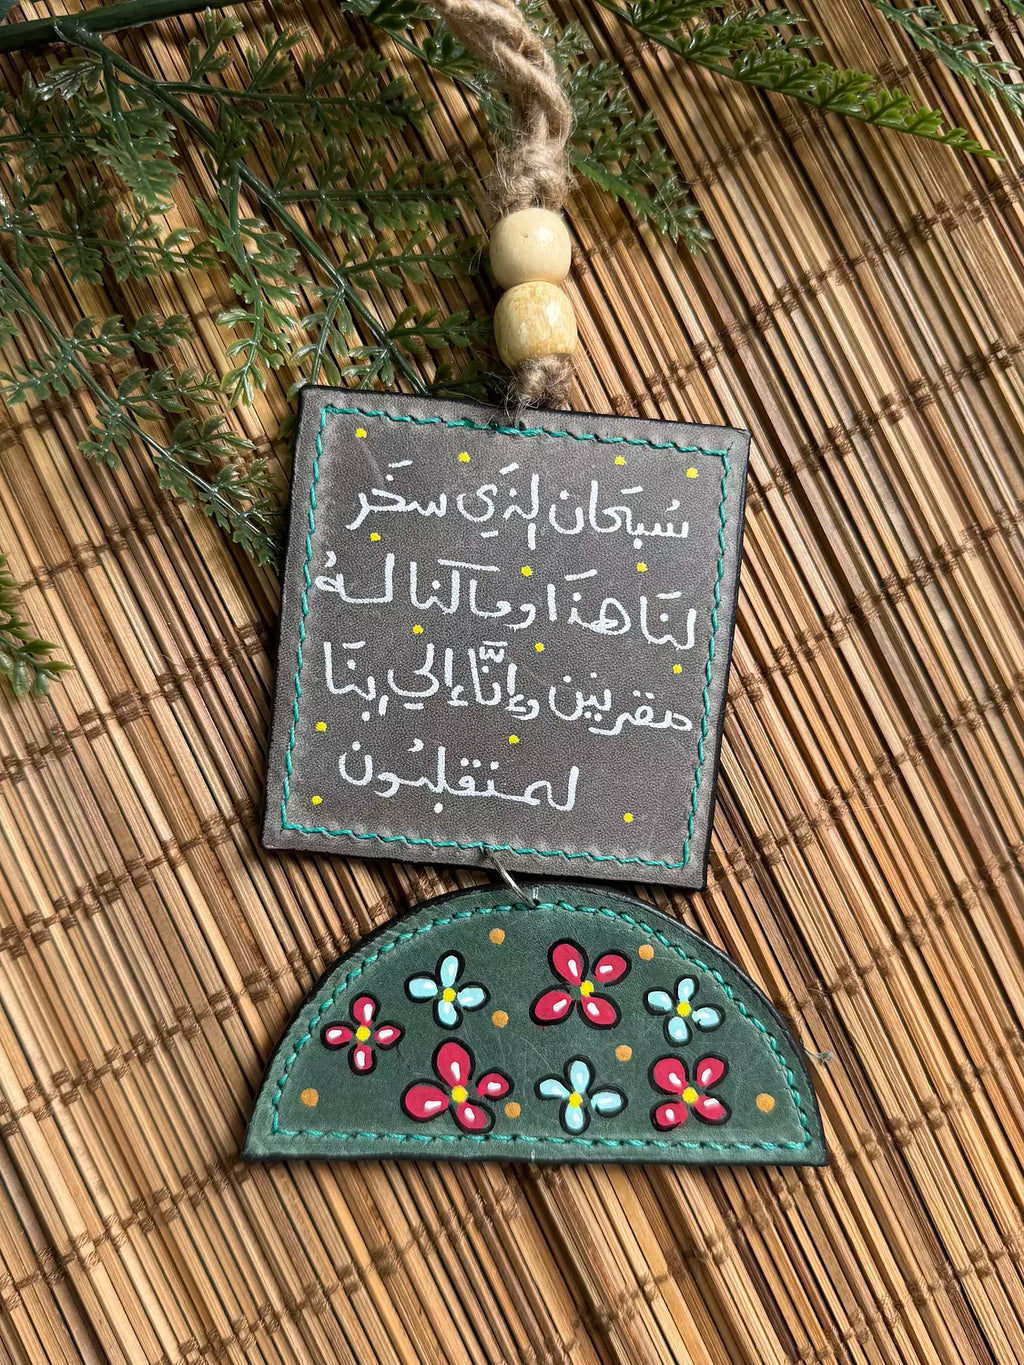 سُبحَان الذَي سخَر
لنَا هذَا وما كنا لهُ
مقرنين وإنَّا إلي ربنَا
لمنقلبُون